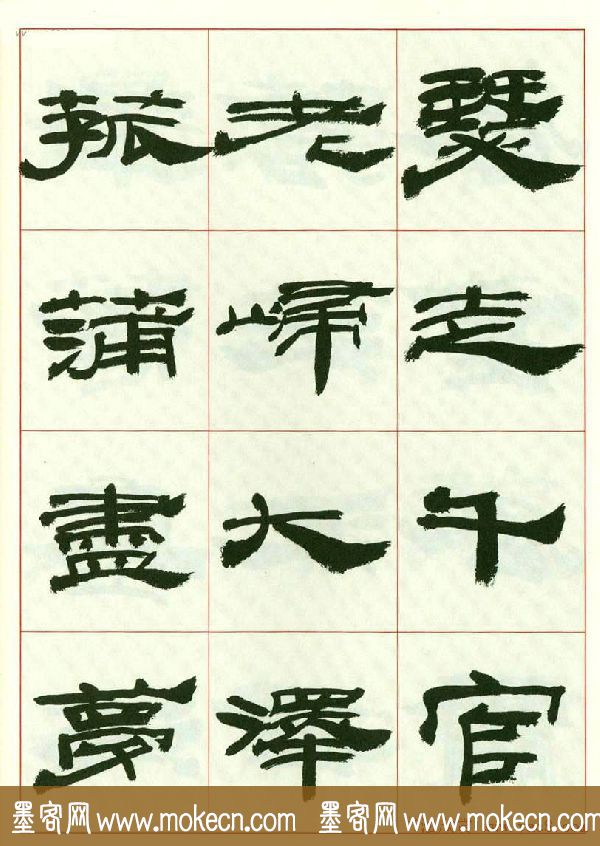 瑟走千官
老歸大澤
菰蒲盡夢
墨客网 www.mokecn.com 墨客网 www.mokecn.com